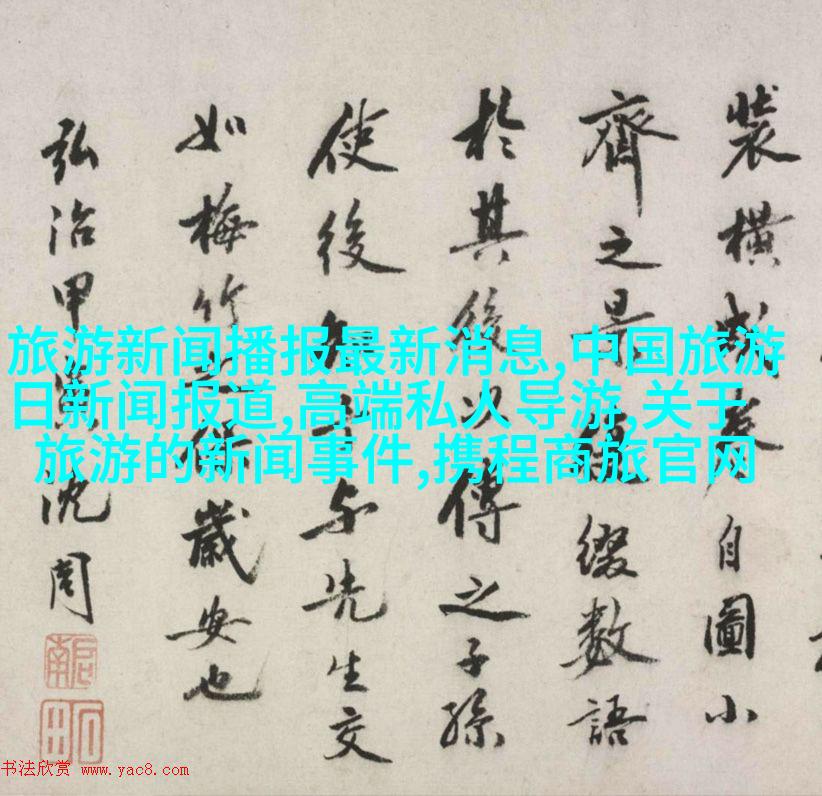 旅游新闻播报最新消息,中国旅游
日新闻报道,高端私人导游,关于
旅游的新闻事件,携程商旅官网
裝橫成卷自圖小
齊之景復綴數語
於其後以傳之子孫
使後与先生交
如梅竹歲安也
弘治甲寅沈周
啟南
书法欣赏 www.yac8.com